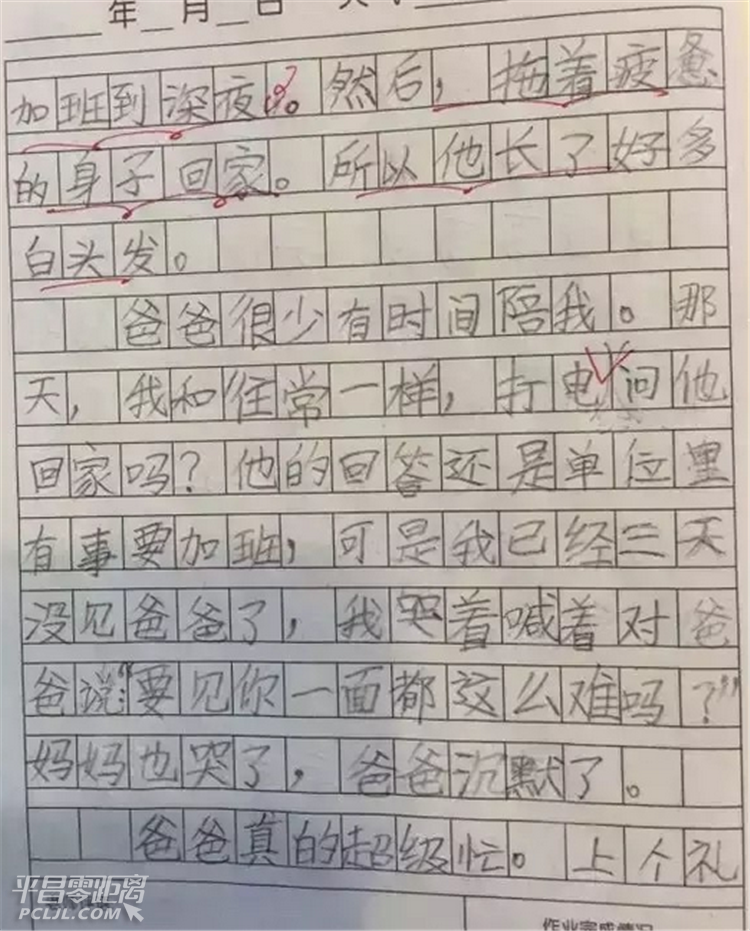 年 月 日
加班到深夜。然后，拖着疲惫
的身子回家。所以他长了好多
白头发。
爸爸很少有时间陪我。那
天，我和往常一样，打电问他
回家吗？他的回答还是单位里
有事要加班，可是我已经三天
没见爸爸了，我哭着喊着对爸
爸说：“要见你一面都这么难吗？”
妈妈也哭了，爸爸沉默了。
爸爸真的超级忙。上个礼
平昌零距离
PCLJL.COM
作业完成情况